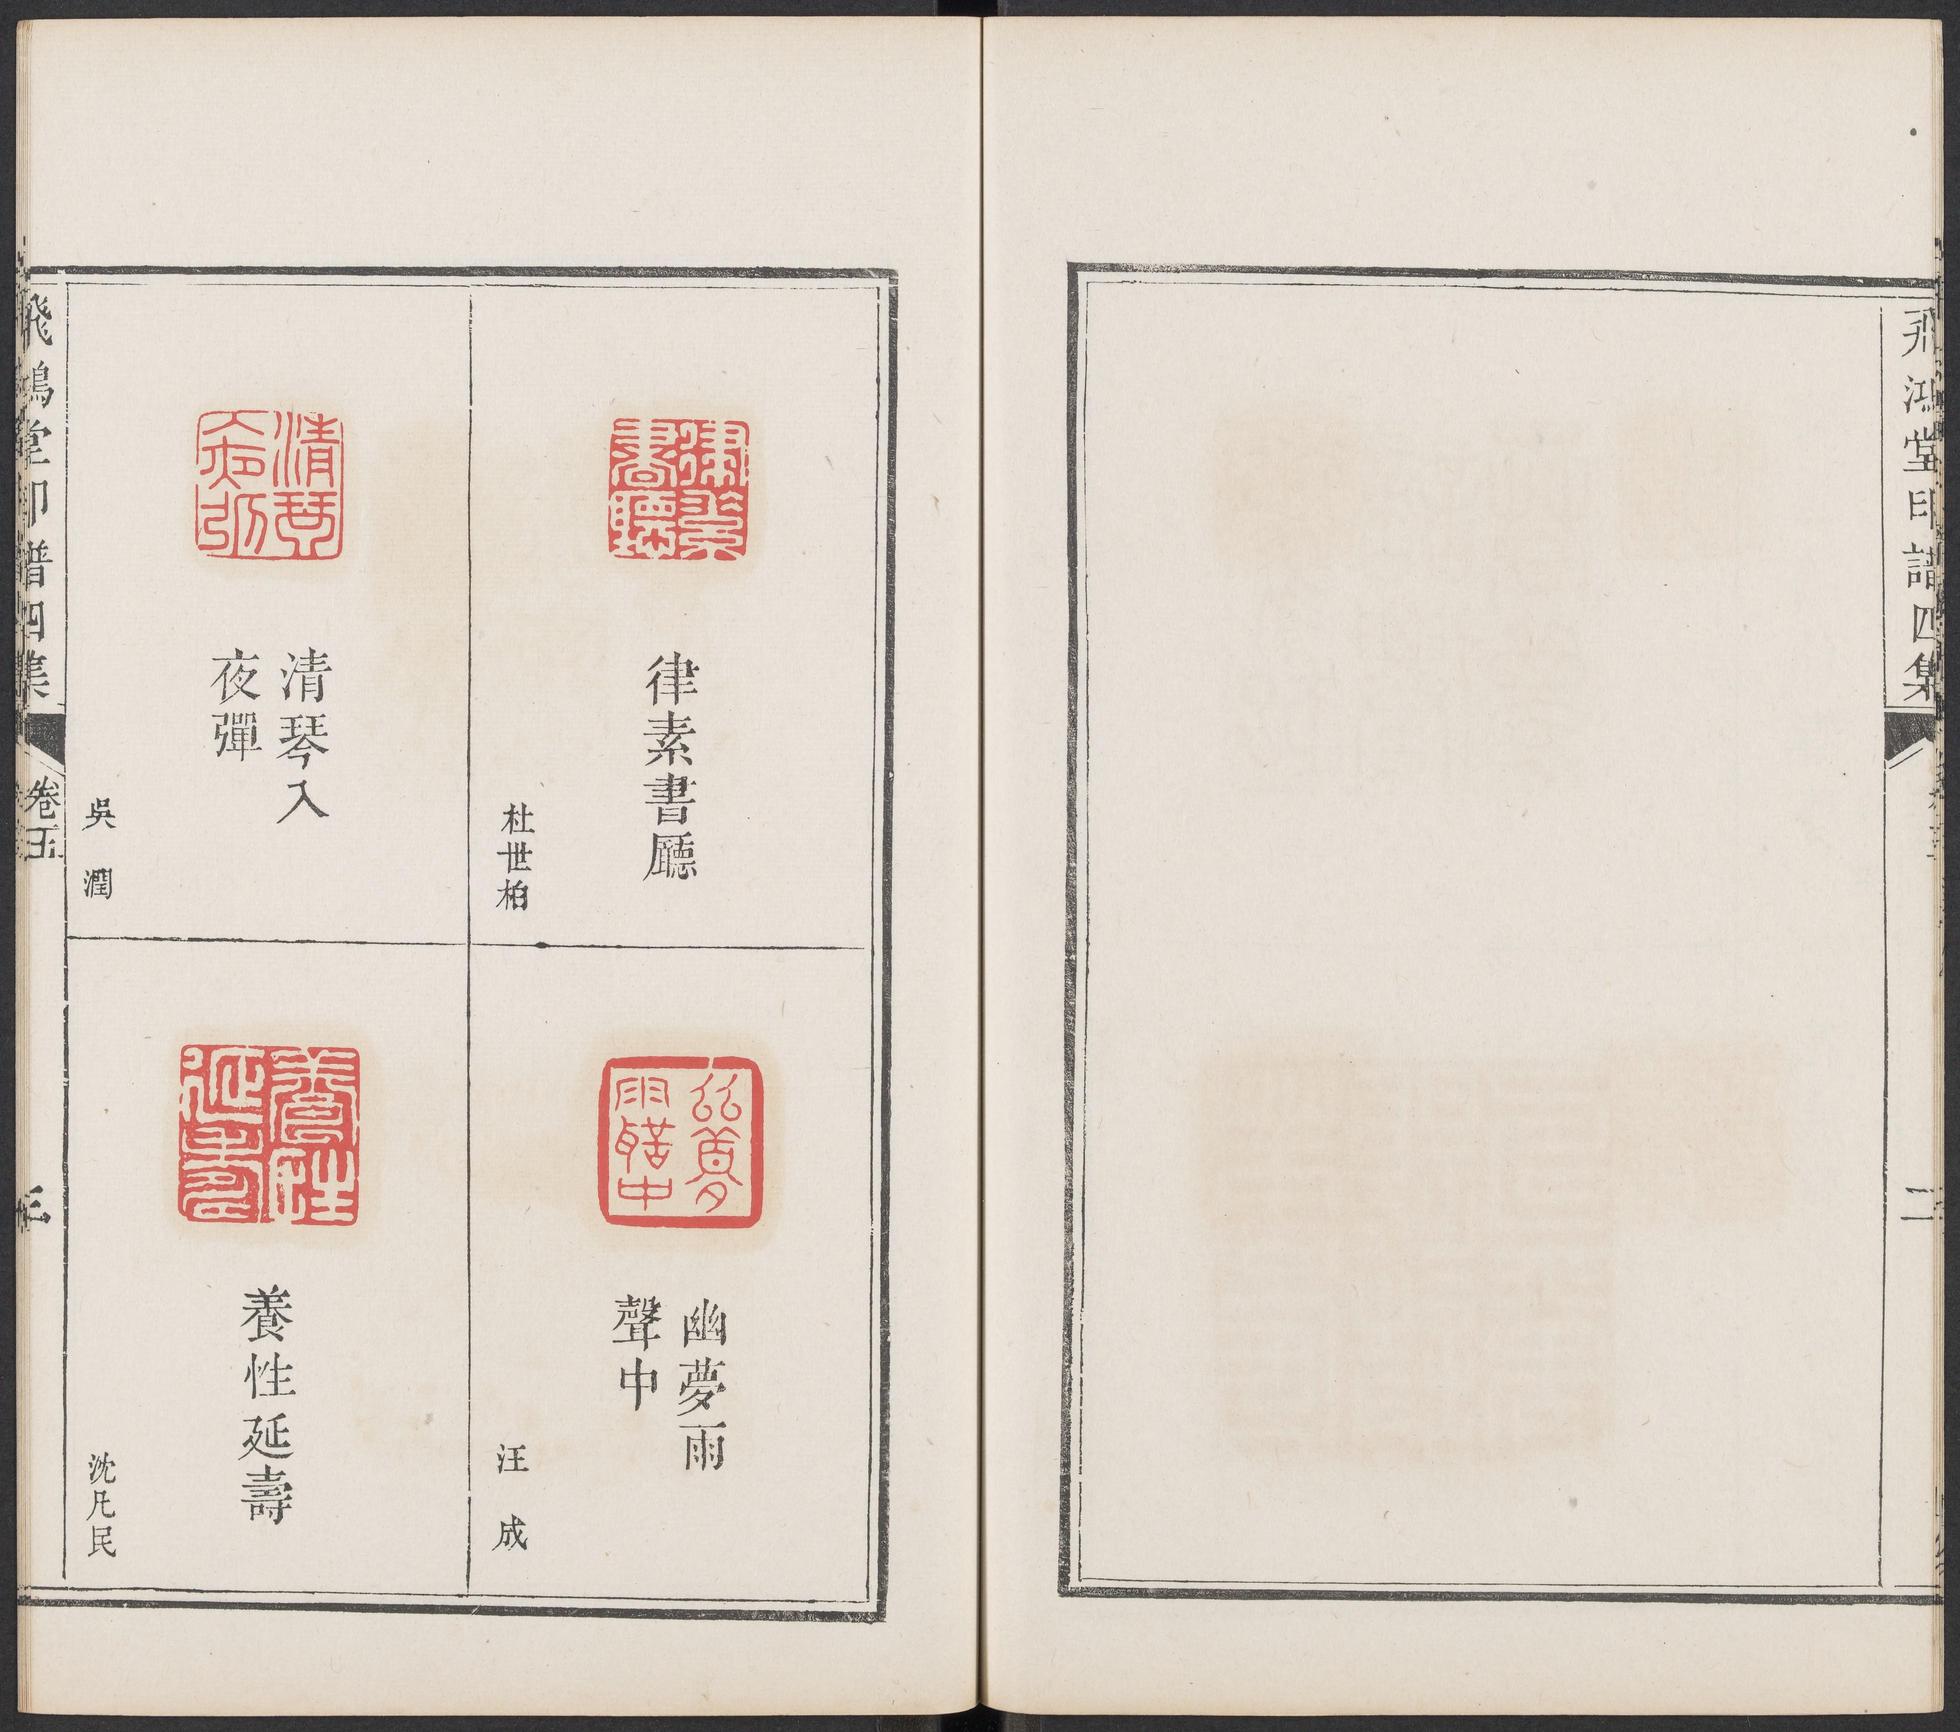 飛鴻堂印譜四集
二
律素書廳
杜世柏
幽夢雨
聲中
汪成
清琴入
夜彈
吳潤
養性延壽
沈凡民
飛鴻堂印譜四集
卷五
三